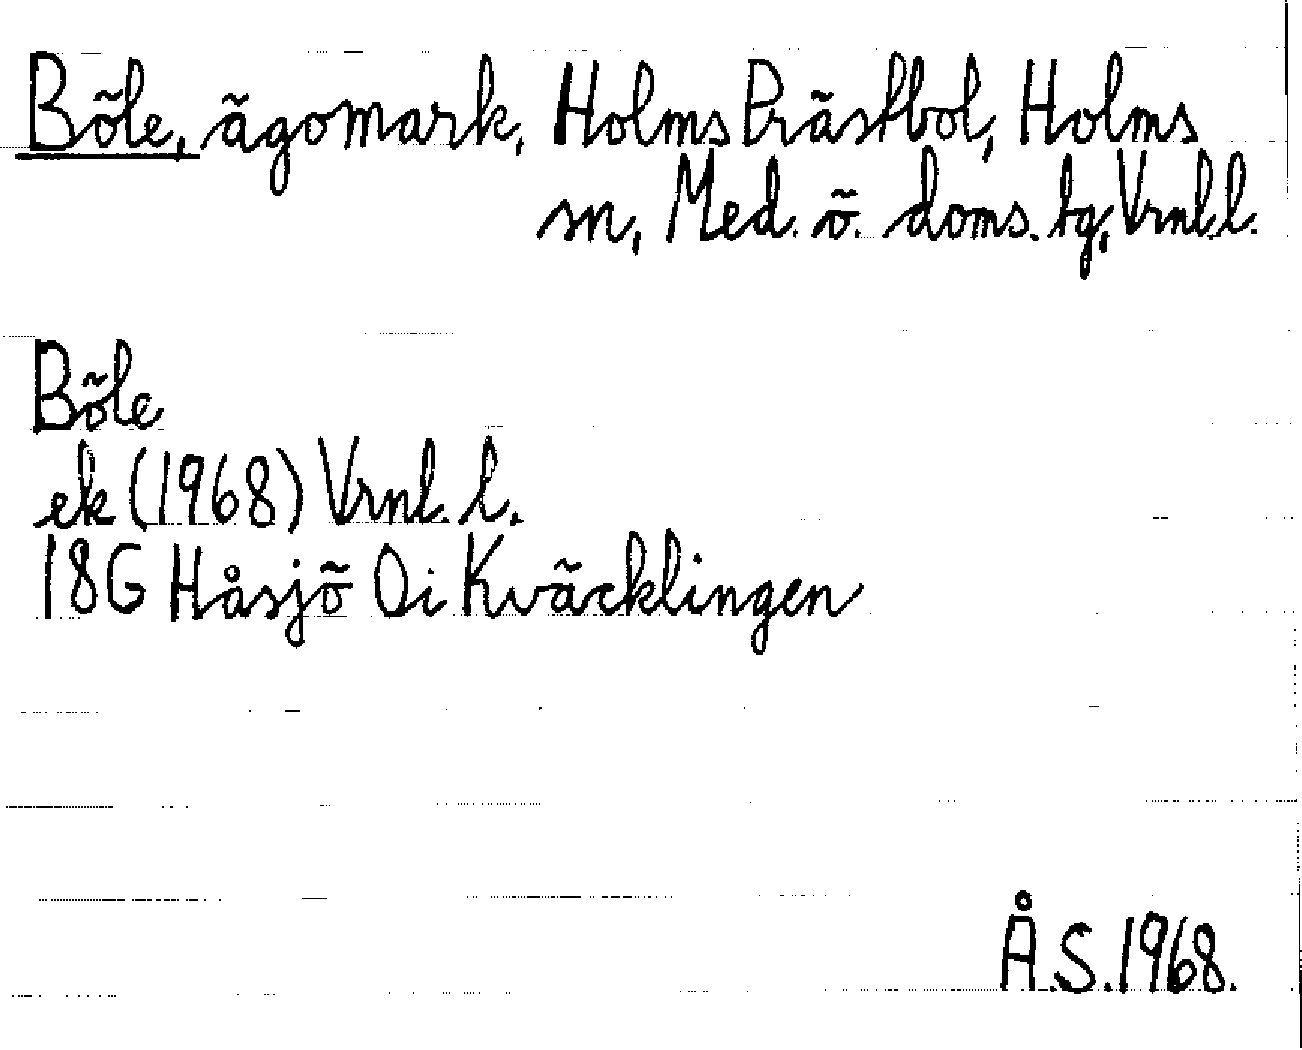 Böle, ägomark, Holms Prästbol, Holms
sn, Med. ö. doms. tg, Vrnl.l.
Böle
ek (1968) Vrnl. l.
18G Håsjö Oi Kväcklingen
Å.S.1968.